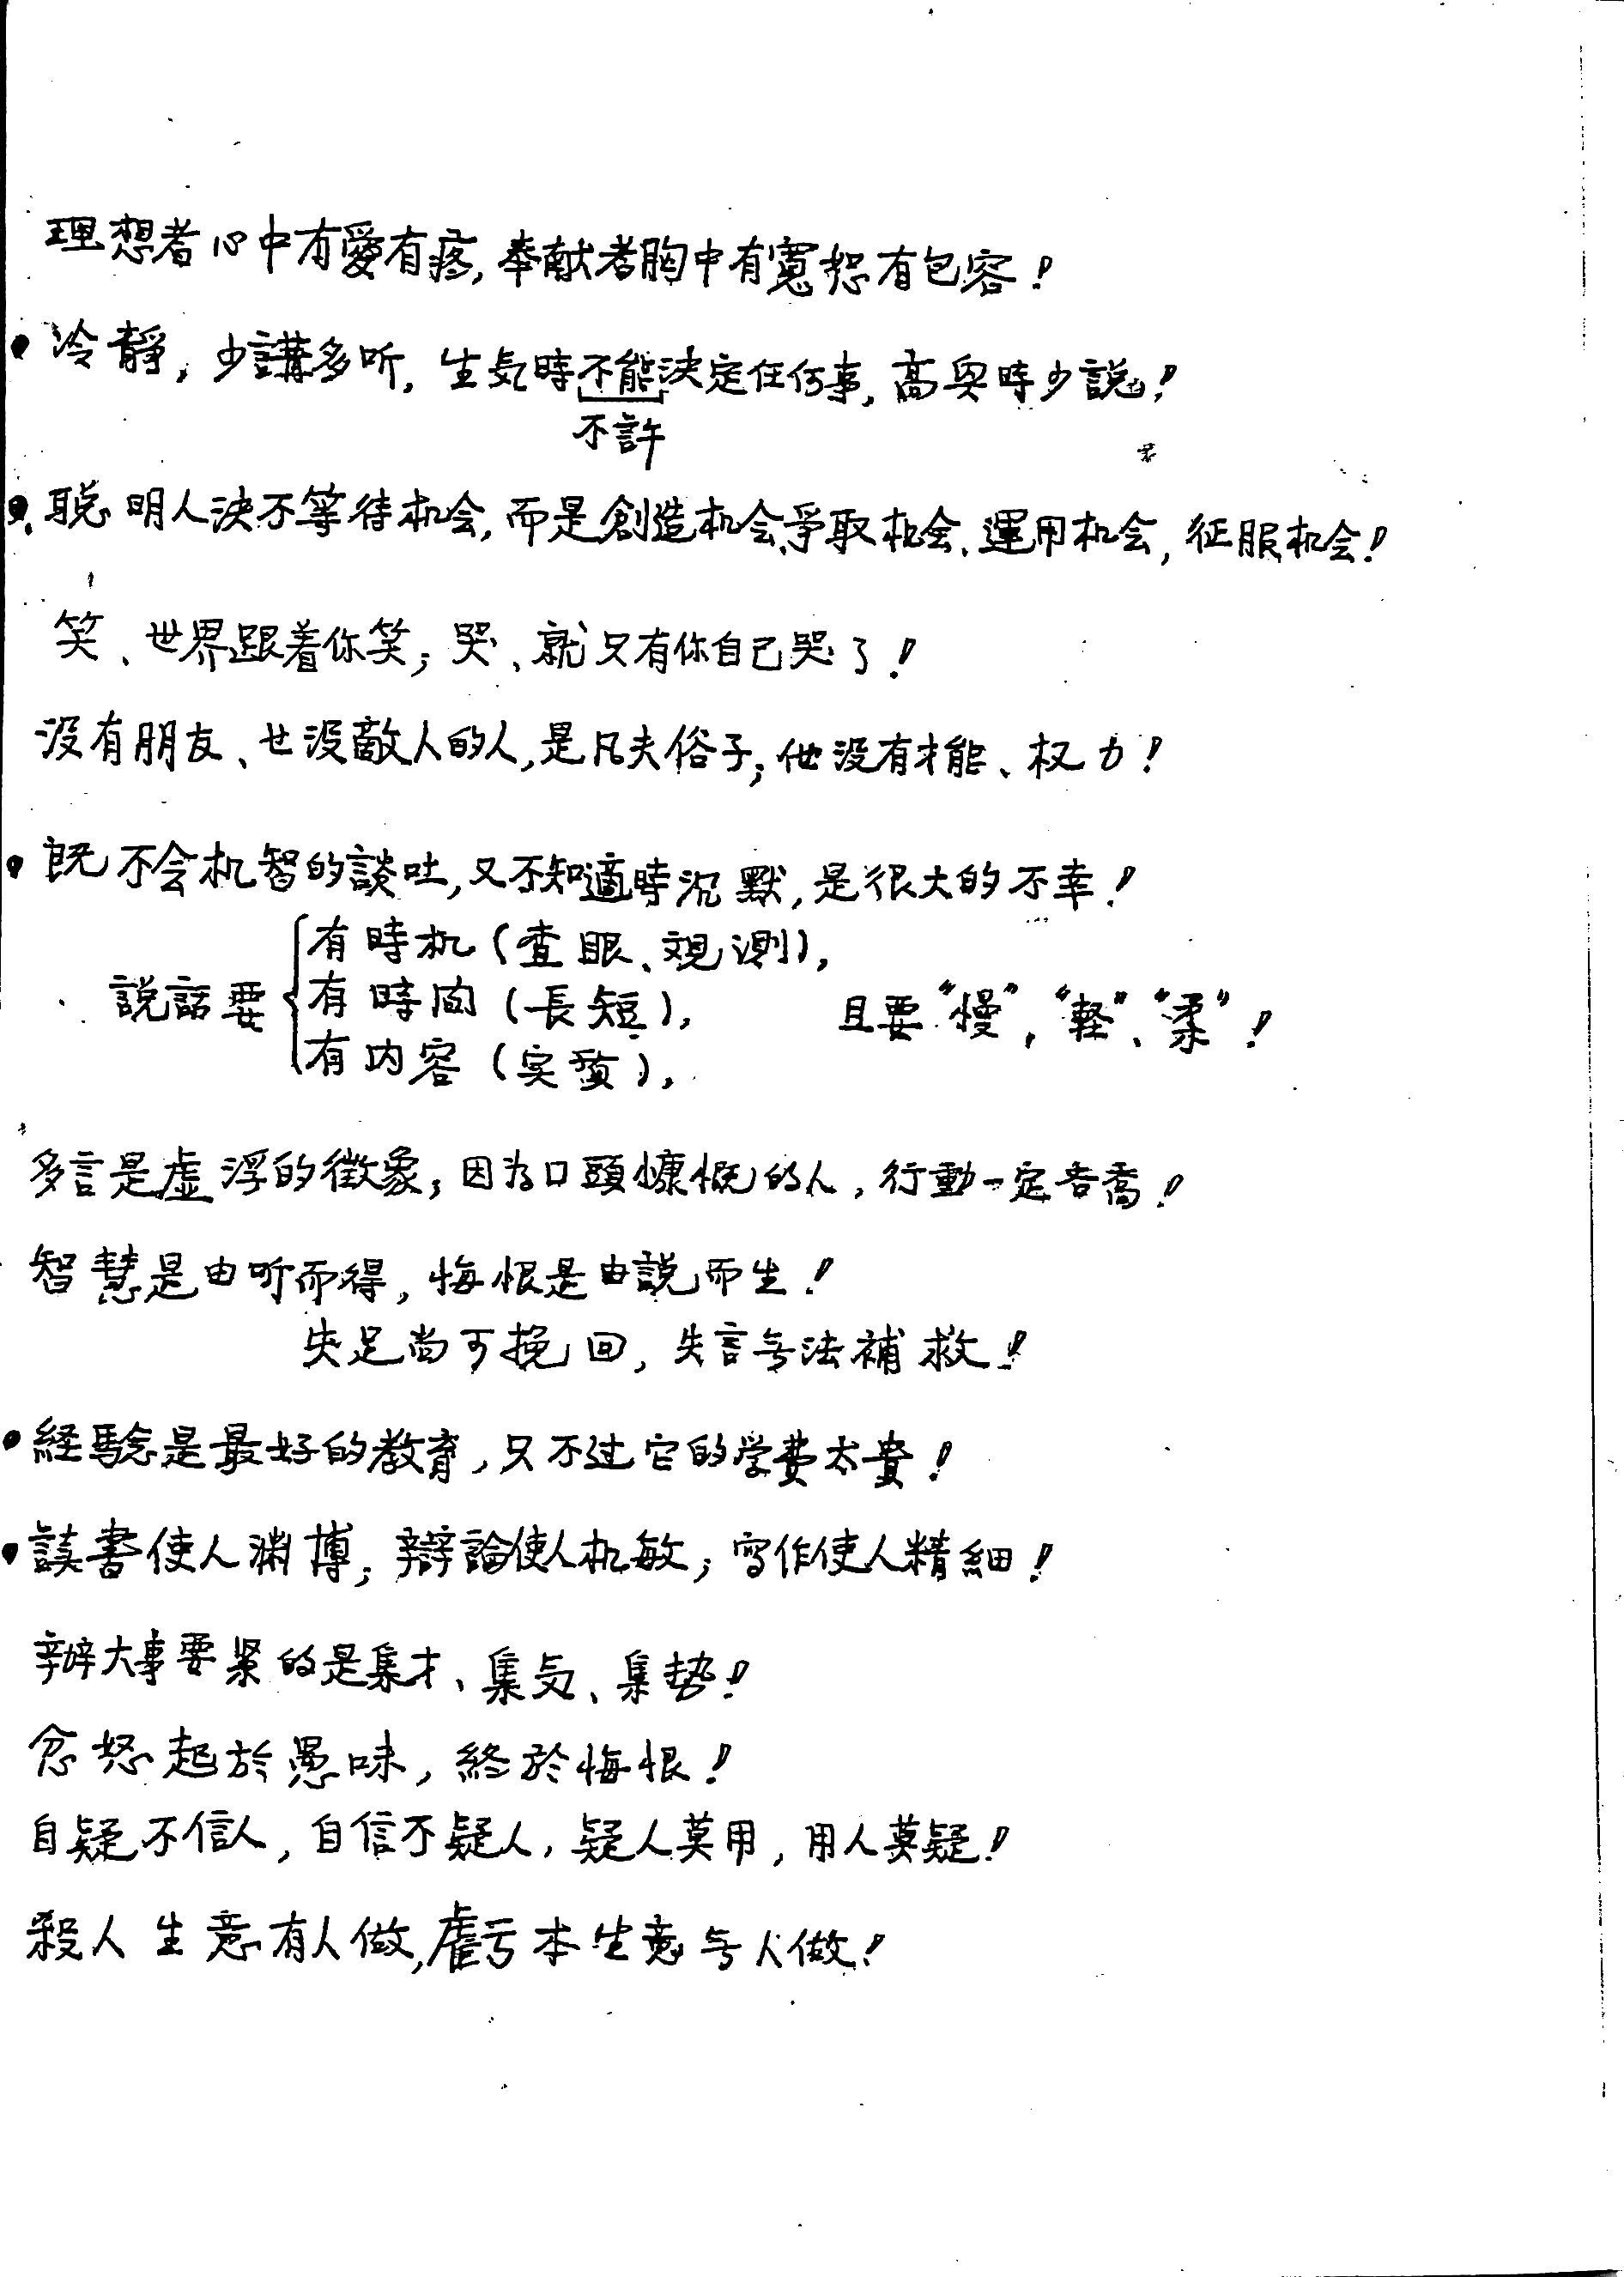 理想者心中有愛有疼,奉献者胸中有寬恕有包容!
•冷靜,少講多听,生気時不能決定任何事,高興時少説!
不許
•聡明人決不等待机会,而是創造机会、爭取机会、運用机会,征服机会!
笑、世界跟着你笑;哭、就只有你自己哭了!
沒有朋友、也沒敵人的人,是凡夫俗子;他沒有才能、权力!
•既不会机智的談吐,又不知適時沉默,是很大的不幸!
有時机(查眼、观測),
説話要 有時间(長短), 且要“慢”,“軽”、“柔”!
有内容(实質),
多言是虚浮的徴象;因为口頭慷慨的人,行動一定吝嗇!
智慧是由听而得,悔恨是由説而生!
失足尚可挽回,失言无法補救!
•経験是最好的教育,只不过它的学費太貴!
•読書使人渊博;辯論使人机敏;写作使人精細!
辦大事要紧的是集才、集気、集势!
忿怒起於愚昧,終於悔恨!
自疑不信人,自信不疑人,疑人莫用,用人莫疑!
殺人生意有人做,虧本生意无人做!